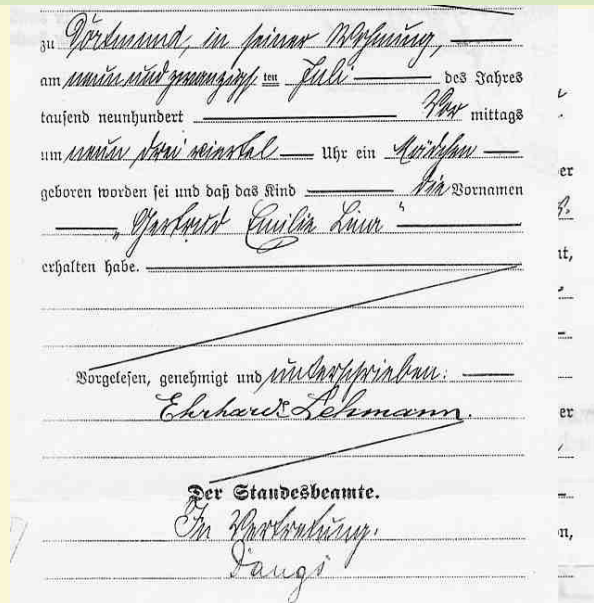 zu Dortmund, in seiner Wohnung,
am neun und zwanzigsten Juli des Jahres
tausend neunhundert Vor mittags
um neun drei viertel Uhr ein Mädchen
geboren worden sei und daß das Kind die Vornamen
„Gertrud Emilie Lina"
erhalten habe.
Vorgelesen, genehmigt und unterschrieben:
Ehrhardt Lehmann.
Der Standesbeamte.
In Vertretung.
er
nt,
er
n,